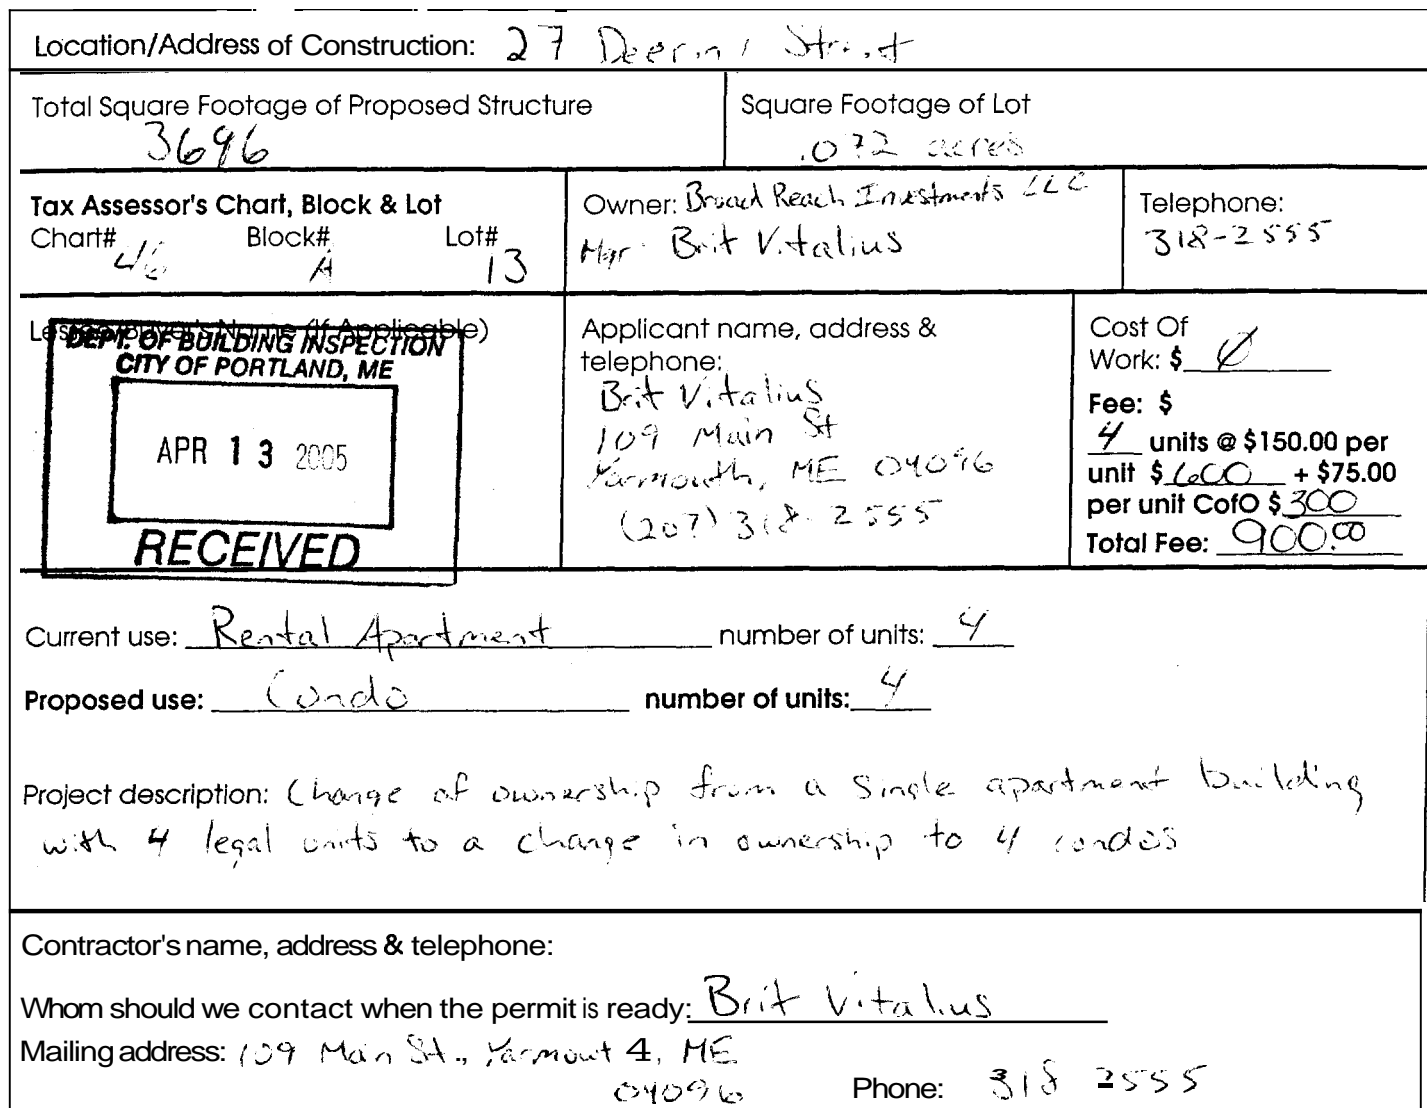 Location/Address of Construction: 27 Street
Total Square Footage of Proposed Structure
3696
Square Footage of Lot
.072 acres
Tax Assessor's Chart, Block & Lot
Chart# Block# Lot#
46 A 13
Owner: Broad Reach Investments LLC
Mgr Brit Vitalius
Telephone:
318-2555
Name (If Applicable)
DEPT. OF BUILDING INSPECTION
CITY OF PORTLAND, ME
APR 13 2005
RECEIVED
Applicant name, address &
telephone:
Brit Vitalius
109 Main St
Yarmouth, ME 04096
(207) 318-2555
Cost Of
Work: $ 0
Fee: $
4 units @ $150.00 per
unit $ 600 + $75.00
per unit CofO $ 300
Total Fee: 900.00
Current use: Rental Apartment number of units: 4
Proposed use: Condo number of units: 4
Project description: Change of ownership from a single apartment building
with 4 legal units to a change in ownership to 4 condos
Contractor's name, address & telephone:
Whom should we contact when the permit is ready: Brit Vitalius
Mailing address: 109 Main St., Yarmout 4, ME
04096 Phone: 318 2555